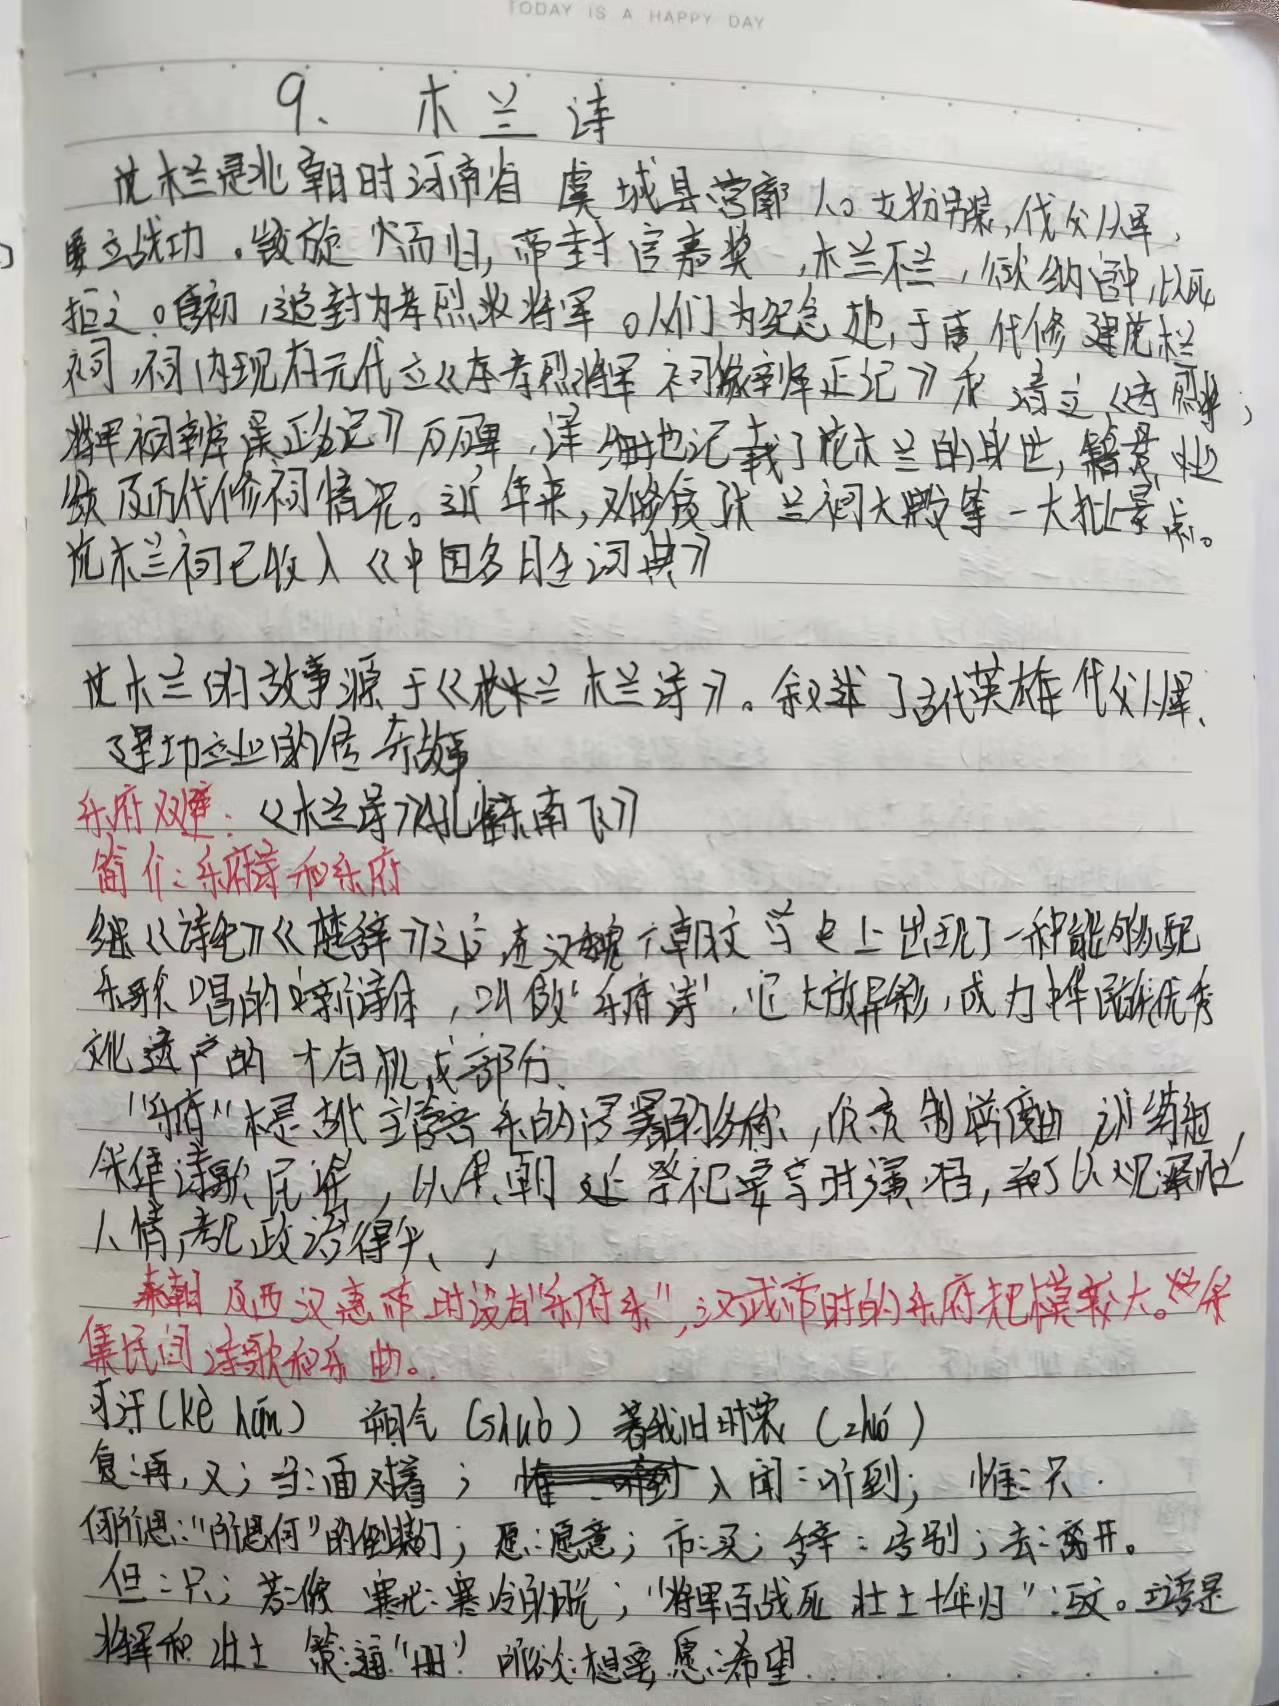 TODAY IS A HAPPY DAY
9、 木兰诗
花木兰是北朝时河南省 虞城县营廓人。女扮男装,代父从军,
立战功。凯旋 而归,帝封官嘉奖,木兰不,欲纳宫中,以死
拒之。唐初,追封为孝烈将军。人们为纪念她,于唐代修建花木兰
祠,祠内现存元代立《孝烈将军 祠像辨正记》和 清立《孝烈
将军祠辨误正名记》碑,详细地记载了花木兰的身世,籍贯,
及历代修祠情况。近年来,又修复 兰祠大殿等一大批景点。
花木兰祠已收入《中国名胜词典》
花木兰的故事源于《 木兰诗》。叙述了古代英雄代父从军、
建功立业的传奇故事
乐府双璧:《木兰诗》《孔雀东南飞》
简介:乐府诗和乐府
继《诗经》《楚辞》之后,在汉魏六朝文学史上出现了一种能够配
乐歌唱的新诗体,叫做“乐府诗”,它大放异彩,成为中华民族优秀
文化遗产的 有机 部分、
“乐府”本是古代主管音乐的官署的名称、,负责制谱度曲,训练
采集诗歌民谣,以供朝廷祭祀宴享时演唱,并可以观风
人情,考见政治得失、,
秦朝及西汉惠帝时设有“乐府”,汉武帝时的乐府规模较大。采
集民间诗歌和乐曲。
可汗(kè hán) 朔气(shuò) 著我旧时裳(zhuó)
复:再,又;当:面对着; 闻:听到; 惟:只.
何所思:“所思何”的倒装;愿:愿意;市:买;辞:告别;去:离开。
但:只;著: 寒光:寒冷的;“将军百战死 壮士十年归”:互文。主语是
将军和壮士 策:通“册” 所欲:想要,愿:希望